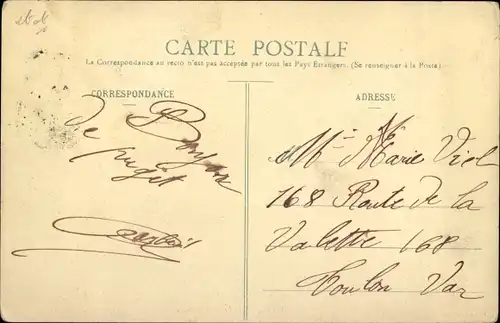 CARTE POSTALE
La Correspondance au recto n'est pas acceptée par tous les Pays Étrangers. (Se renseigner à la Poste)
CORRESPONDANCE
ADRESSE
de
puget
Mlle Marie Viol
168 Route de la
Valette 168
Toulon Var